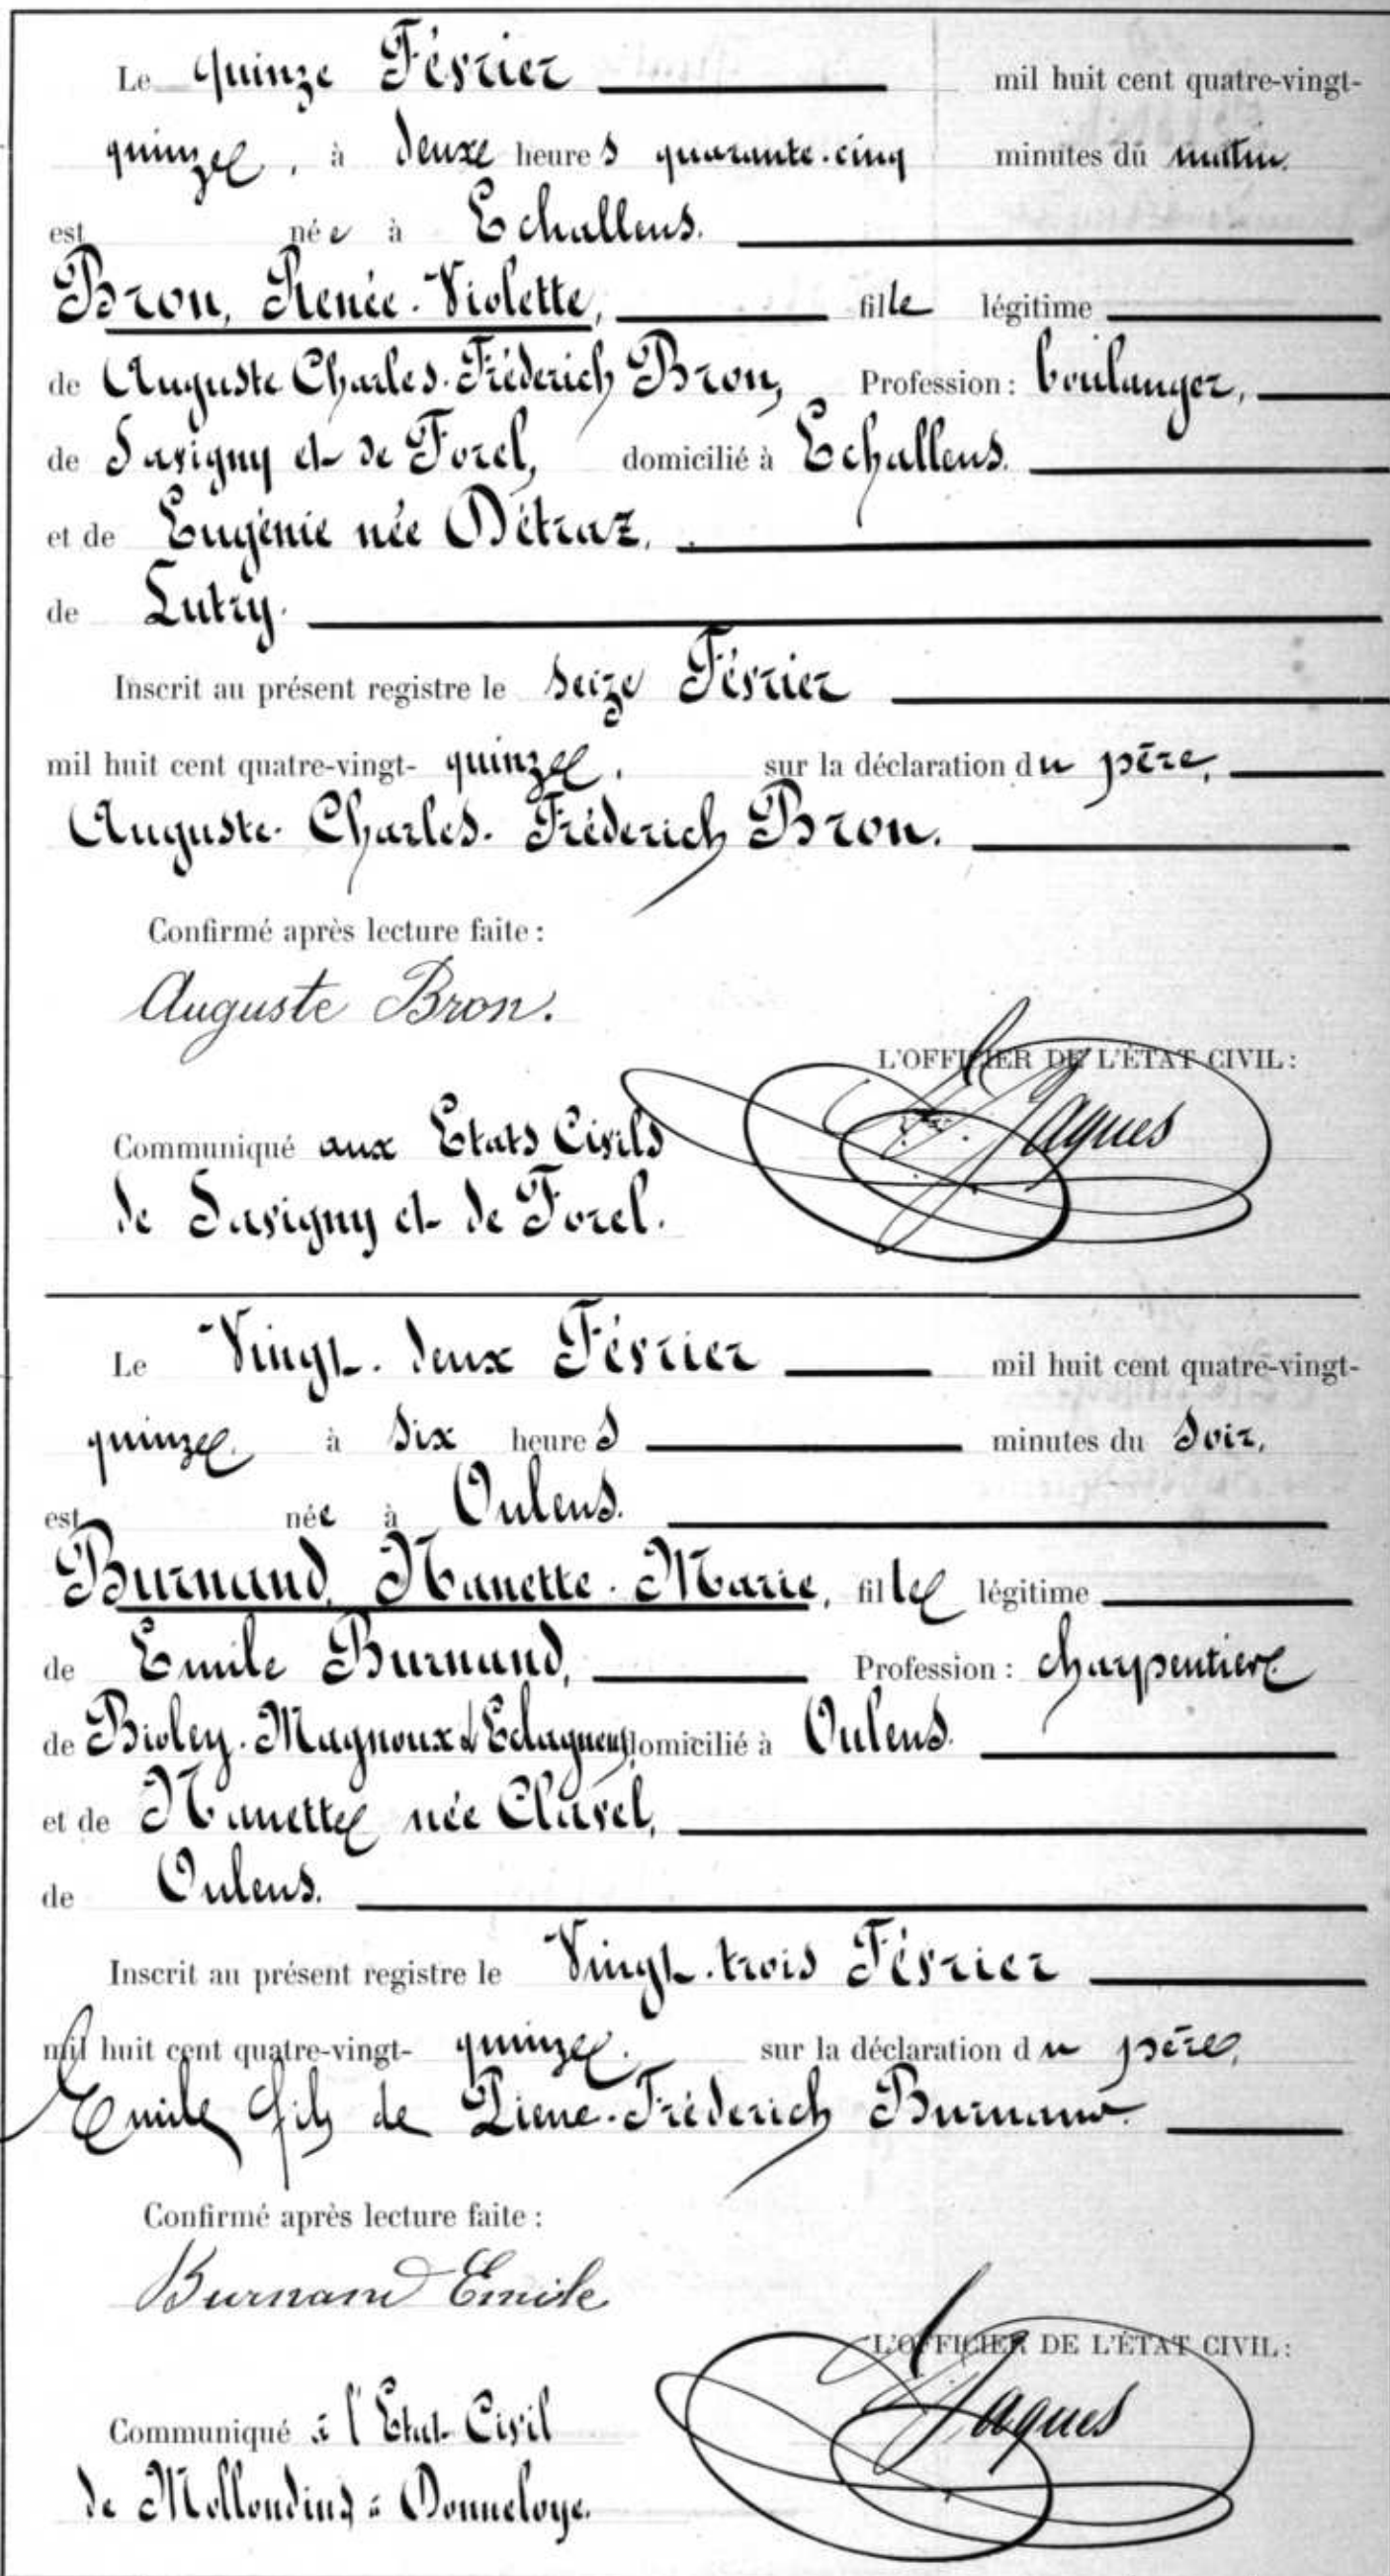 Le quinze Février mil huit cent quatre-vingt-
quinze, à deux heures quarante-cinq minutes du matin
est née à Echallens.
Bron, Renée-Violette, fille légitime
de Auguste Charles-Fréderich Bron, Profession : boulanger,
de Savigny et de Forel, domicilié à Echallens.
et de Eugénie née Détraz,
de Lutry.
Inscrit au présent registre le seize Février
mil huit cent quatre-vingt- quinze, sur la déclaration du père,
Auguste-Charles-Fréderich Bron.
Confirmé après lecture faite :
Auguste Bron.
L'OFFICIER DE L'ÉTAT CIVIL :
Jaques
Communiqué aux Etats Civils
de Savigny et de Forel.
Le Vingt-deux Février mil huit cent quatre-vingt-
quinze à six heures minutes du soir,
est née à Oulens.
Burnand, Nanette-Marie, fille légitime
de Emile Burnand, Profession : charpentier
de Bioley-Magnoux & Eclagnens, domicilié à Oulens.
et de Nanette née Clavel,
de Oulens.
Inscrit au présent registre le Vingt-trois Février
mil huit cent quatre-vingt- quinze. sur la déclaration du père,
Emile fils de Pierre-Fréderich Burnand.
Confirmé après lecture faite :
Burnand Emile
L'OFFICIER DE L'ÉTAT CIVIL :
Jaques
Communiqué à l'Etat-Civil
de Mollondins à Donneloye.